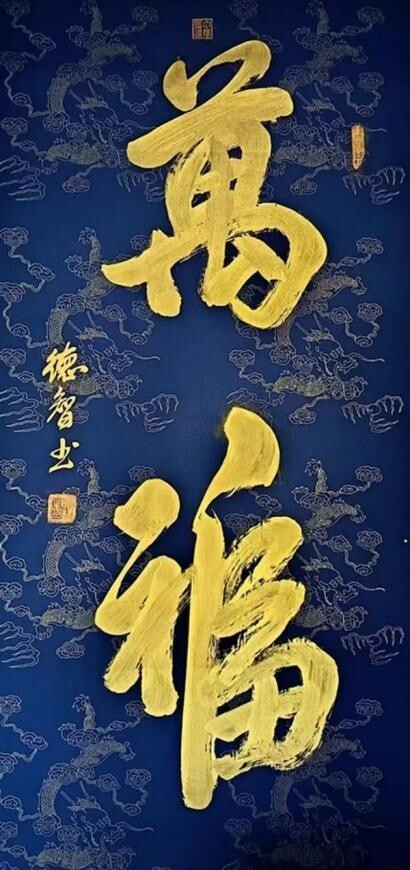 萬福
德智书